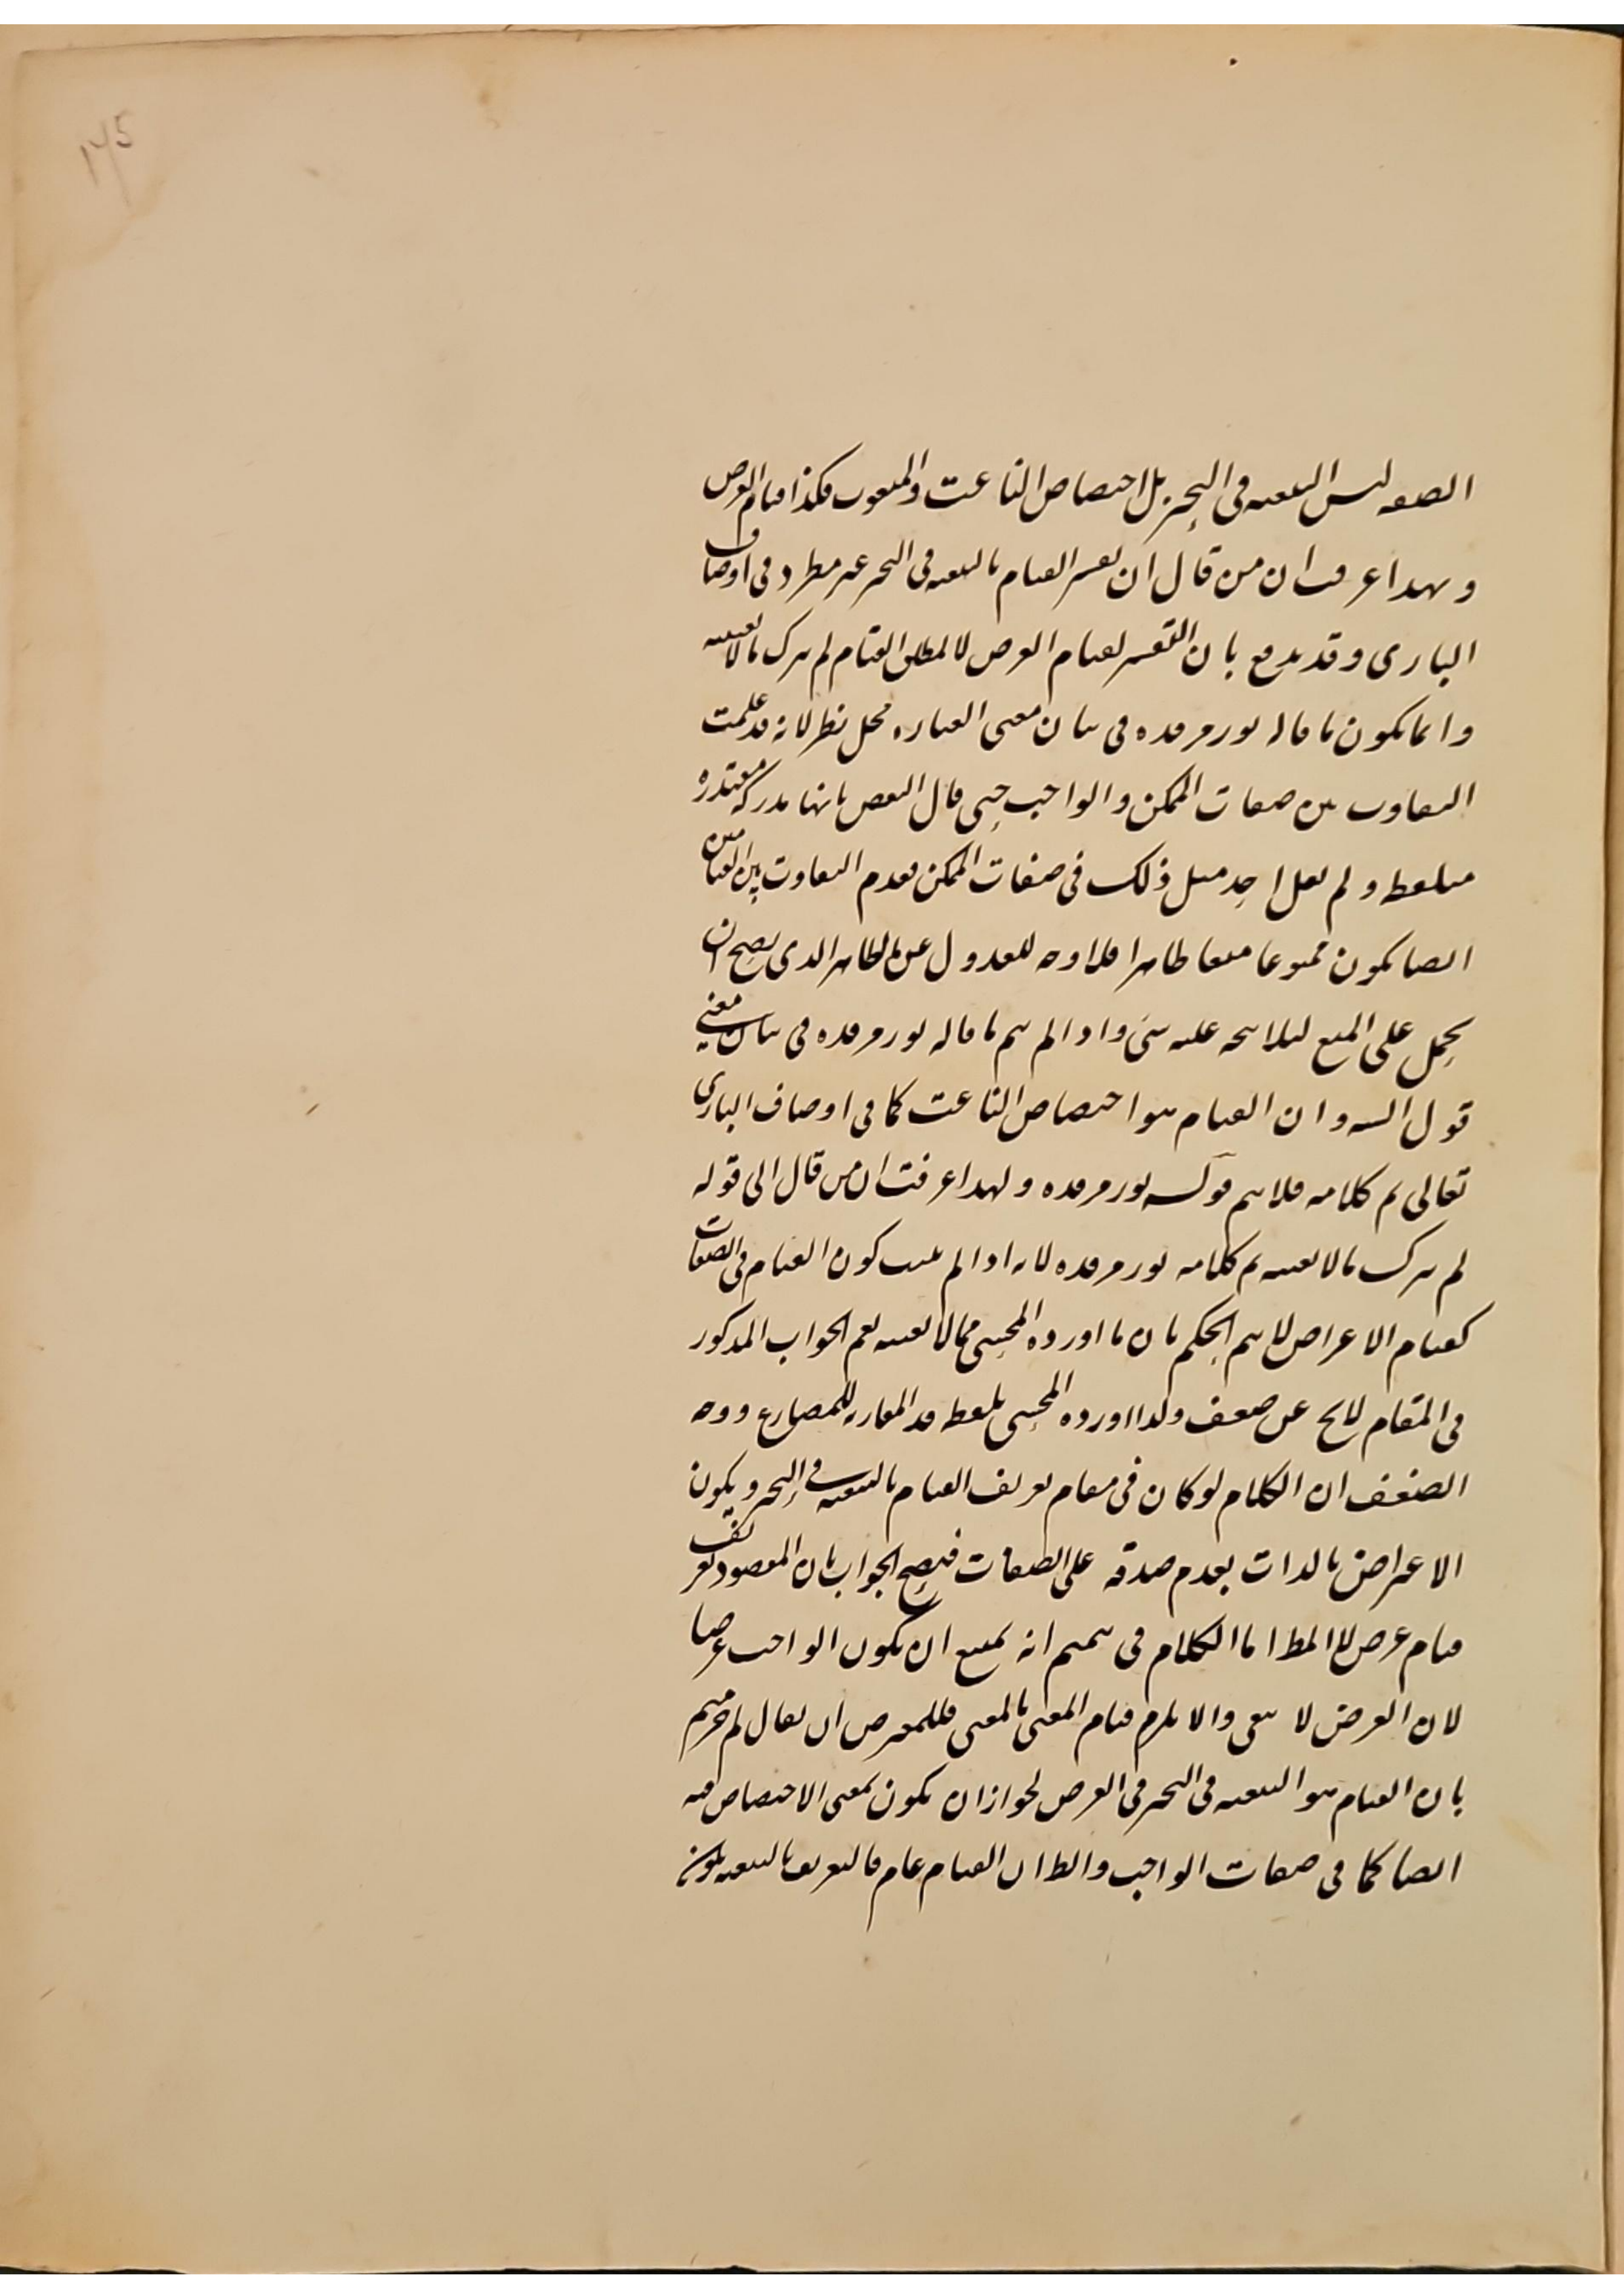 ١٧٥
الصفه ليس التبعيه فى التحيز بل اختصاص الناعت والمنعوت فكذا قيام العرض
وبهذا عرفت ان من قال ان تفسير القيام بالتبعيه فى التحيز غير مطرد فى اوصاف
البارى وقد يدفع بان التفسير لقيام العرض لا لمطلق القيام لم يترك ما لا يعنيه
وانما يكون ما قاله نور مرقده فى بيان معنى العباره محل نظر لانه قد علمت
التفاوت بين صفات الممكن والواجب حتى قال البعض بانها مدركة
ولم يقل احد مثل ذلك فى صفات الممكن فعدم التفاوت بين القيامين
ايضا يكون ممنوعا منعا ظاهرا فلا وجه للعدول عن الظاهر الذى يصح ان
يحمل على المنع ليلا يتجه عليه شى واذا لم يتم ما قاله نور مرقده فى بيان معنى
قول السيد وان القيام هو اختصاص الناعت كما فى اوصاف البارى
تعالى تم كلامه فلا يتم قوله نور مرقده ولهذا عرفت ان من قال الى قوله
لم يترك ما لا يعنيه تم كلامه نور مرقده لانه اذا لم يثبت كون القيام فى الصفات
كقيام الاعراض لا يتم الحكم بان ما اورده المحشى مما لا يعنيه نعم الجواب المذكور
فى المقام لايح عن ضعف ولذا اورده المحشى بلفظ قد المقارنه للمضارع ووجه
الضعف ان الكلام لو كان فى مقام تعريف القيام بالتبعيه فى التحيز ويكون
الاعتراض بالذات بعدم صدقه على الصفات فيصح الجواب بان المقصود تعريف
قيام عرض لا المط اما الكلام فى تتميم انه يمتنع ان يكون الواجب عرضا
لان العرض لا يبقى والا يلزم قيام المعنى بالمعنى فللمعترض ان يقال لم جزمتم
بان القيام هو التبعيه فى التحيز فى العرض لجواز ان يكون بمعنى الاختصاص فيه
ايضا كما فى صفات الواجب والظ ان القيام عام فالتعريف بالتبعيه